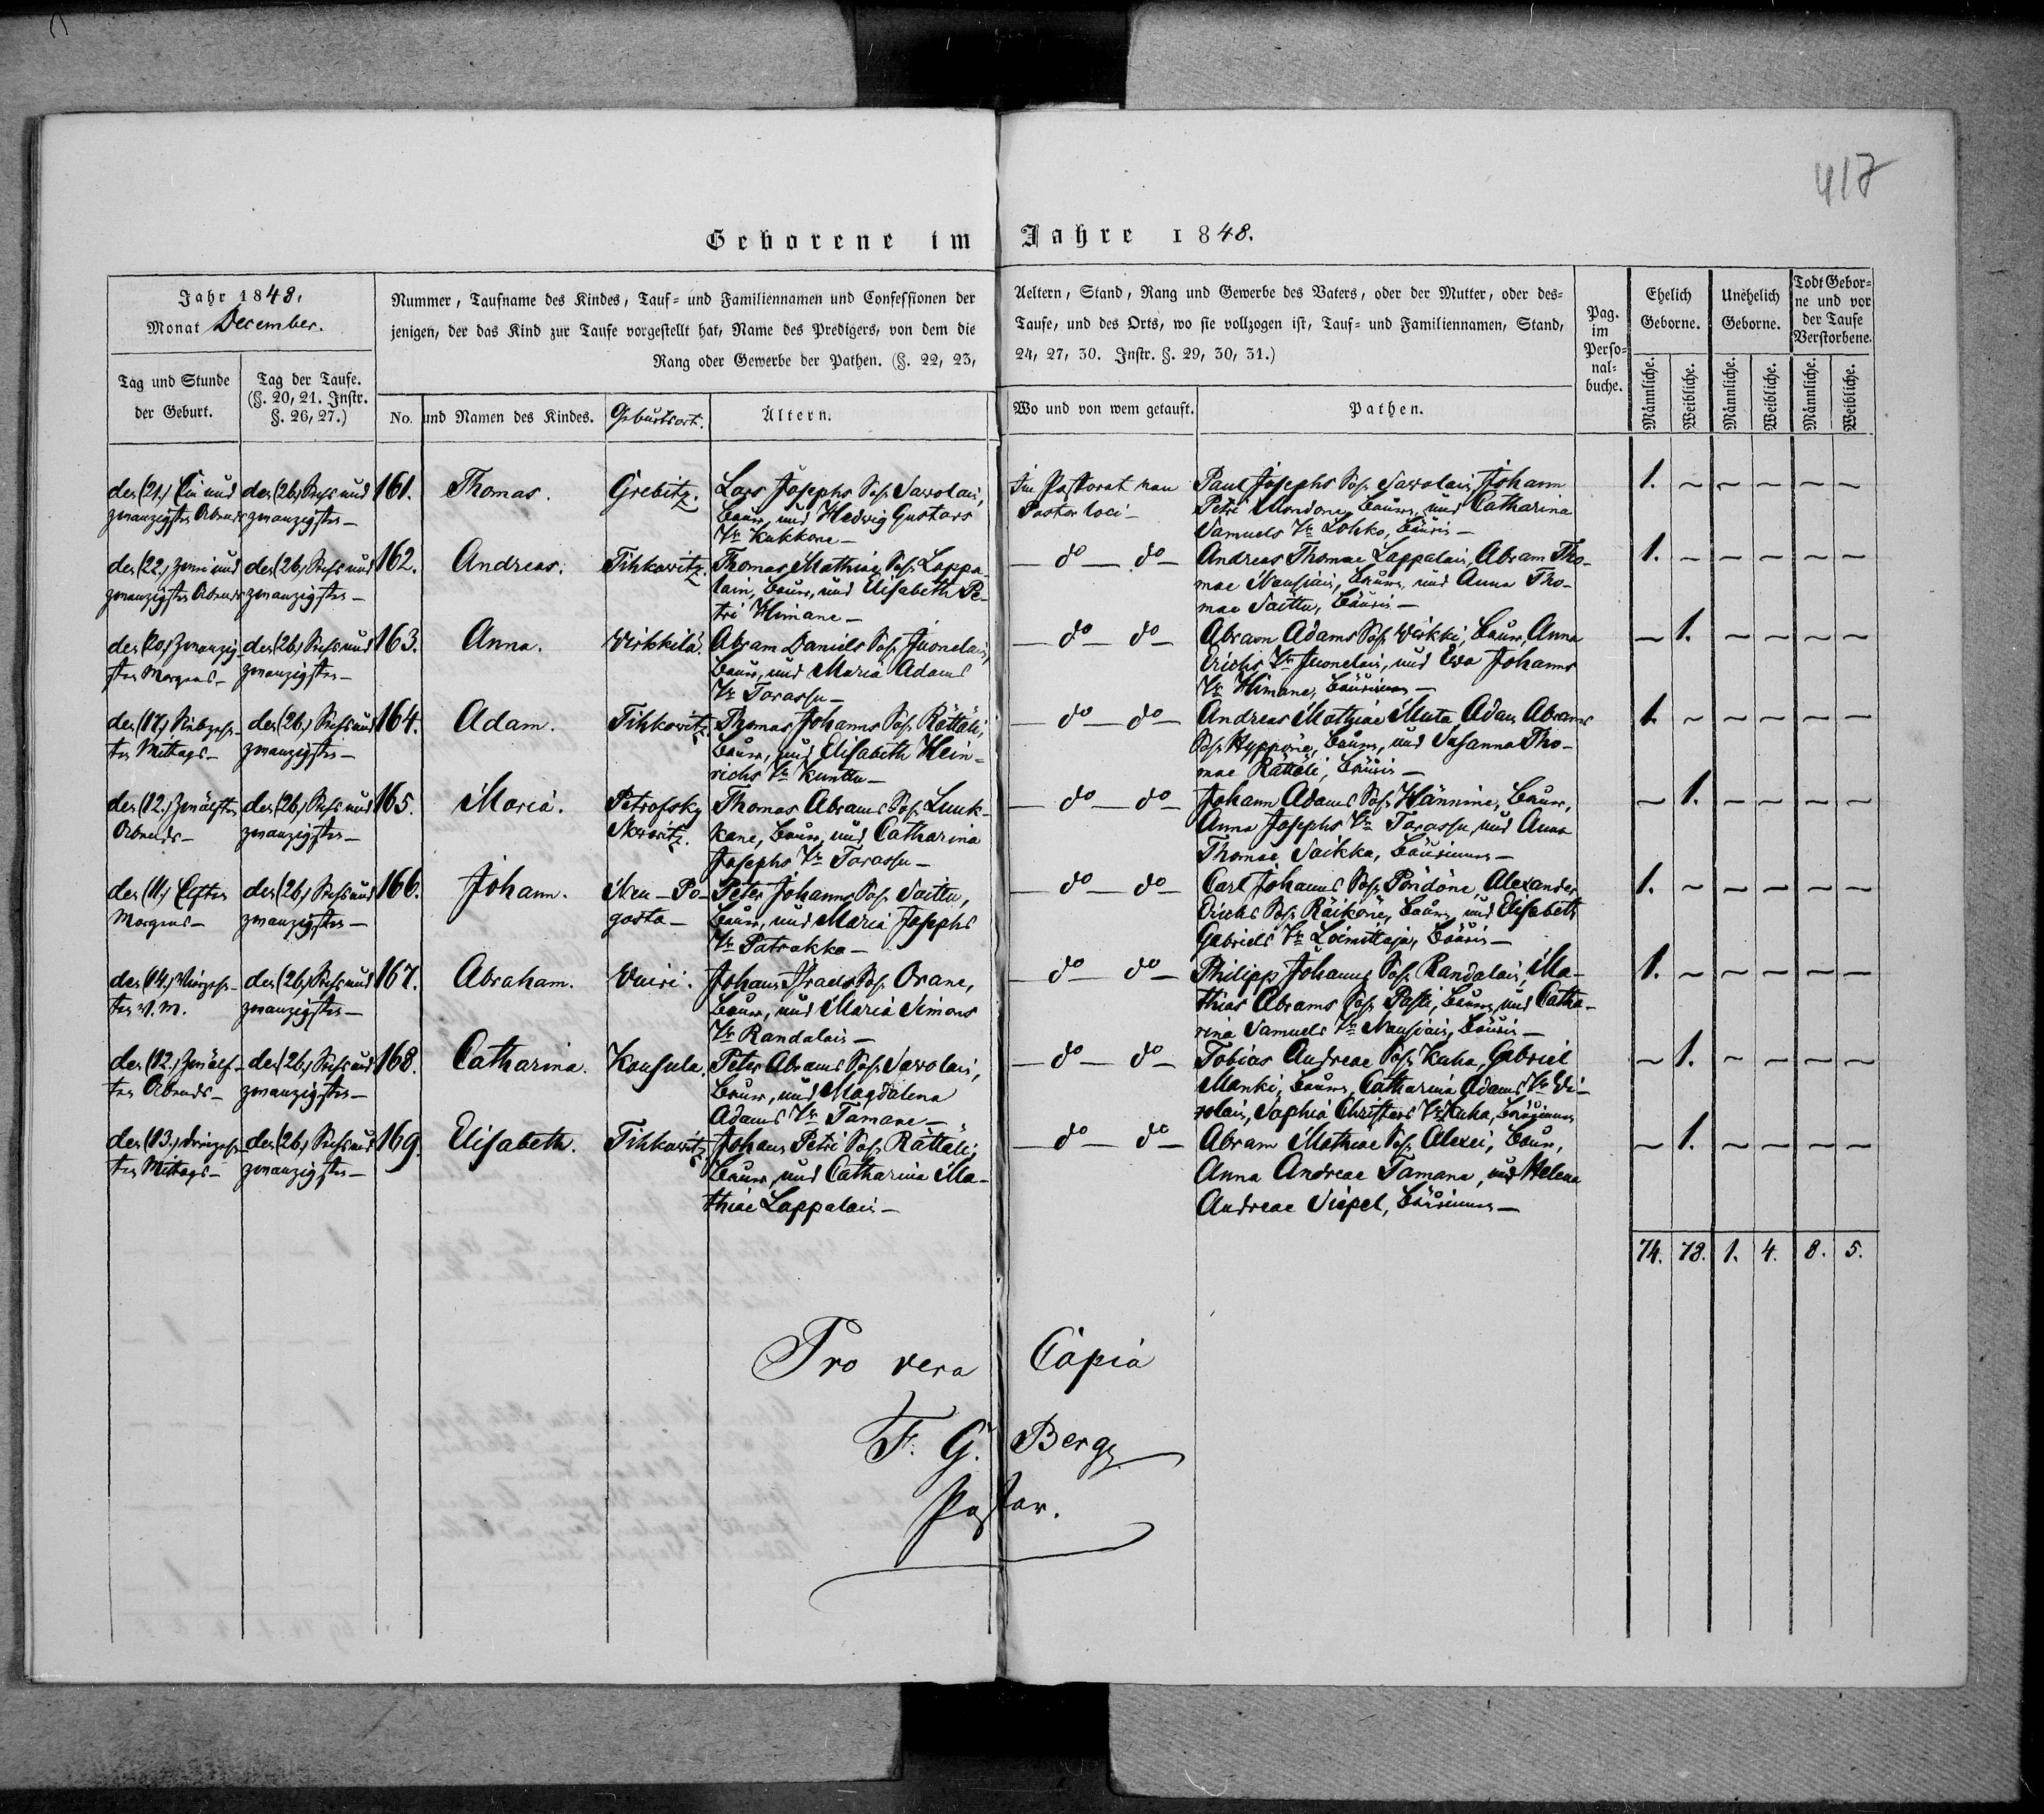 417
Geborene im Jahre 1848.
Jahr 1848.
Monat December.
Nummer, Taufname des Kindes, Tauf- und Familiennamen und Confessionen der
jenigen, der das Kind zur Taufe vorgestellt hat, Name des Predigers, von dem die
Rang oder Gewerbe der Pathen. (§. 22, 23,
Aeltern, Stand, Rang und Gewerbe des Vaters, oder der Mutter, oder des-
Taufe, und des Orts, wo sie vollzogen ist, Tauf- und Familiennamen, Stand,
24, 27, 30. Instr. §. 29, 30, 31.)
Pag.
im
Perso-
nal-
buche.
Ehelich
Geborne.
Unehelich
Geborne.
Todt Gebor-
ne und vor
der Taufe
Verstorbene.
Tag und Stunde
der Geburt.
Tag der Taufe.
(§. 20, 21. Instr.
§. 26, 27.)
No. und Namen des Kindes.
Geburtsort.
Ältern.
Wo und von wem getauft.
Pathen.
Männliche.
Weibliche.
Männliche.
Weibliche.
Männliche.
Weibliche.
den (21.) Ein und
zwanzigsten Abends
den (26.) Sechs und
zwanzigsten —
161.
Thomas.
Grebitz.
Lars Josephs Soh. Savolain,
Bauer, und Hedwig Gustavs
Tr. Kukkone —
Im Pastorat von
Pastor loci —
Paul Josephs Soh. Savolain, Johann
Petri Mondone, Bauern, und Catharina
Samuels Tr. Lohko, Bäurin —
1. — — — — —
den (22.) Zwei und
zwanzigsten Abends
den (26.) Sechs und
zwanzigsten —
162.
Andreas.
Tihkowitz.
Thomas Mathiae Soh. Lappa-
lain, Bauer, und Elisabeth Pe-
tri Himane —
— do — do —
Andreas Thomae Lappalain, Abram Tho-
mae Nausiain, Bauern, und Anna Tho-
mae Saittu, Bäurin —
1. — — — — —
den (20.) Zwanzig-
sten Morgens —
den (26.) Sechs und
zwanzigsten —
163.
Anna.
Wirkkilä
Abram Daniels Soh. Juonelain,
Bauer, und Maria Adams
Tr. Tarassu —
— do — do —
Abram Adams Soh. Wirkki, Bauer, Anna
Erichs Tr. Juonelain, und Ewa Johanns
Tr. Himane, Bäurinnen —
— 1. — — — —
den (17.) Siebzehn-
ten Mittags —
den (26.) Sechs und
zwanzigsten —
164.
Adam.
Tihkowitz.
Thomas Johanns Soh. Rättäli,
Bauer, und Elisabeth Hein-
richs Tr. Kunttu —
— do — do —
Andreas Mathiae Muta, Adam Abrams
Soh. Hyppöne, Bauern, und Susanna Tho-
mae Rättäli, Bäurin —
1. — — — — —
den (12.) Zwölften
Abends —
den (26.) Sechs und
zwanzigsten —
165.
Maria.
Petrofsky
Skworitz.
Thomas Abrams Soh. Luuk-
kane, Bauer, und Catharina
Josephs Tr. Tarassu —
— do — do —
Johann Adams Soh. Hännine, Bauer,
Anna Josephs Tr. Tarassu, und Anna
Thomae Saikka, Bäurinnen —
— 1. — — — —
den (11.) Elften
Morgens —
den (26.) Sechs und
zwanzigsten —
166.
Johann.
Neu-Po-
gosta —
Peter Johanns Soh. Saittu,
Bauer, und Maria Josephs
Tr. Patrakka —
— do — do —
Carl Johanns Soh. Pöndöne, Alexander
Erichs Soh. Räiköne, Bauern, und Elisabeth
Gabriels Tr. Loimittaja, Bäurin —
1. — — — — —
den (14.) Vierzehn-
ten N. M.
den (26.) Sechs und
zwanzigsten —
167.
Abraham.
Wuiri.
Johann Israels Soh. Orane,
Bauer, und Maria Simons
Tr. Randalain —
— do — do —
Philipp Johanns Soh. Randalain, Ma-
thias Abrams Soh. Passi, Bauern, und Catha-
rina Samuels Tr. Nausiain, Bäurin —
1. — — — — —
den (12.) Zwölf-
ten Abends —
den (26.) Sechs und
zwanzigsten —
168.
Catharina.
Konsula.
Peter Abrams Soh. Savolain,
Bauer, und Magdalena
Adams Tr. Tamane —
— do — do —
Tobias Andreae Soh. Kuha, Gabriel
Manki, Bauern, Catharina Adams Tr.
Sophia Christers Tr. Kuha, Bäurinnen
— 1. — — — —
den (13.) Dreizehn-
ten Mittags —
den (26.) Sechs und
zwanzigsten —
169.
Elisabeth.
Tihkowitz
Johann Petri Soh. Rättäli,
Bauer, und Catharina Ma-
thiae Lappalain —
— do — do —
Abram Mathiae Soh. Alexei, Bauer,
Anna Andreae Tamane, und Helena
Andreae Siepel, Bäurinnen —
— 1. — — — —
74. 78. 1. 4. 8. 5.
Pro vera Copia
F. G. Berg
Pastor.